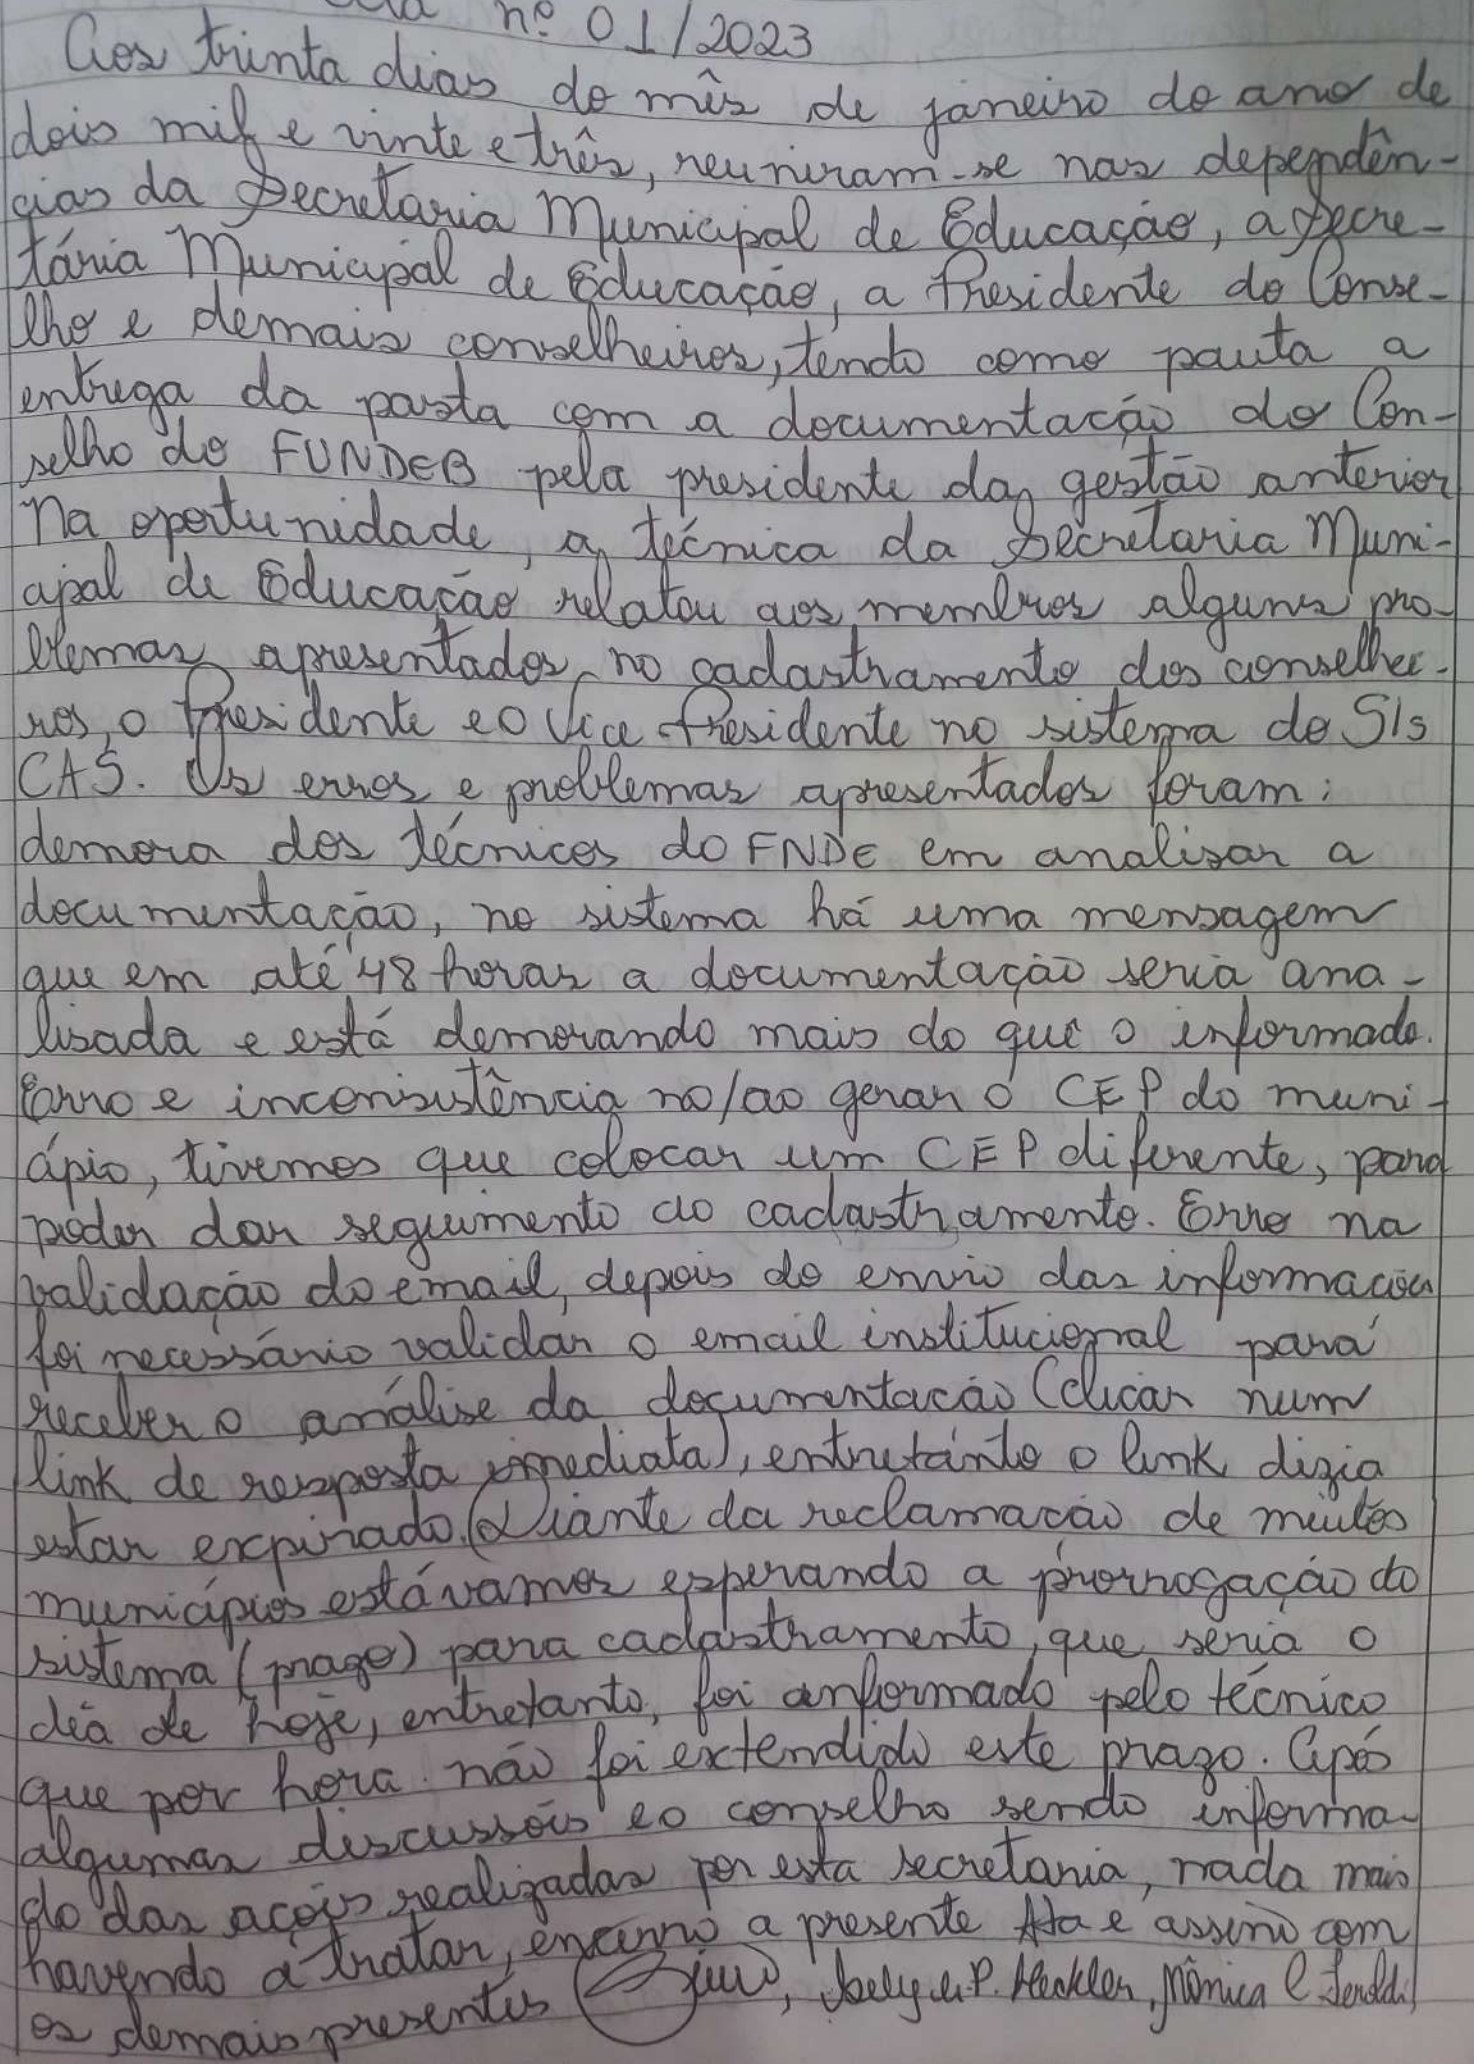 Ata nº 01/2023
Aos trinta dias do mês de janeiro do ano de
dois mil e vinte e três, reuniram-se nas dependên-
cias da Secretaria Municipal de Educação, a Secre-
tária Municipal de Educação, a Presidente do Conse-
lho e demais conselheiros, tendo como pauta a
entrega da pasta com a documentação do Con-
selho do FUNDEB pela presidente da gestão anterior
Na oportunidade, a técnica da Secretaria Muni-
cipal de Educação relatou aos membros alguns pro-
blemas apresentados no cadastramento dos conselhei-
ros, o Presidente e o Vice-Presidente no sistema do SIS
CAS. Os erros e problemas apresentados foram:
demora dos técnicos do FNDE em analisar a
documentação, no sistema há uma mensagem
que em até 48 horas a documentação seria ana-
lisada e está demorando mais do que o informado.
Erro e inconsistência no/ao gerar o CEP do muni-
cípio, tivemos que colocar um CEP diferente, para
poder dar seguimento ao cadastramento. Erro na
validação do email, depois do envio das informações
foi necessário validar o email institucional para
receber o análise da documentação (clicar num
link de resposta imediata), entretanto o link dizia
estar expirado. Diante da reclamação de muitos
municípios estávamos esperando a prorrogação do
sistema (prazo) para cadastramento, que seria o
dia de hoje, entretanto, foi informado pelo técnico
que por hora não foi extendido este prazo. Após
algumas discussões e o conselho sendo informa-
do das ações realizadas por esta secretaria, nada mais
havendo a tratar, encerro a presente Ata e assino com
os demais presentes P. Heckler, Mônica